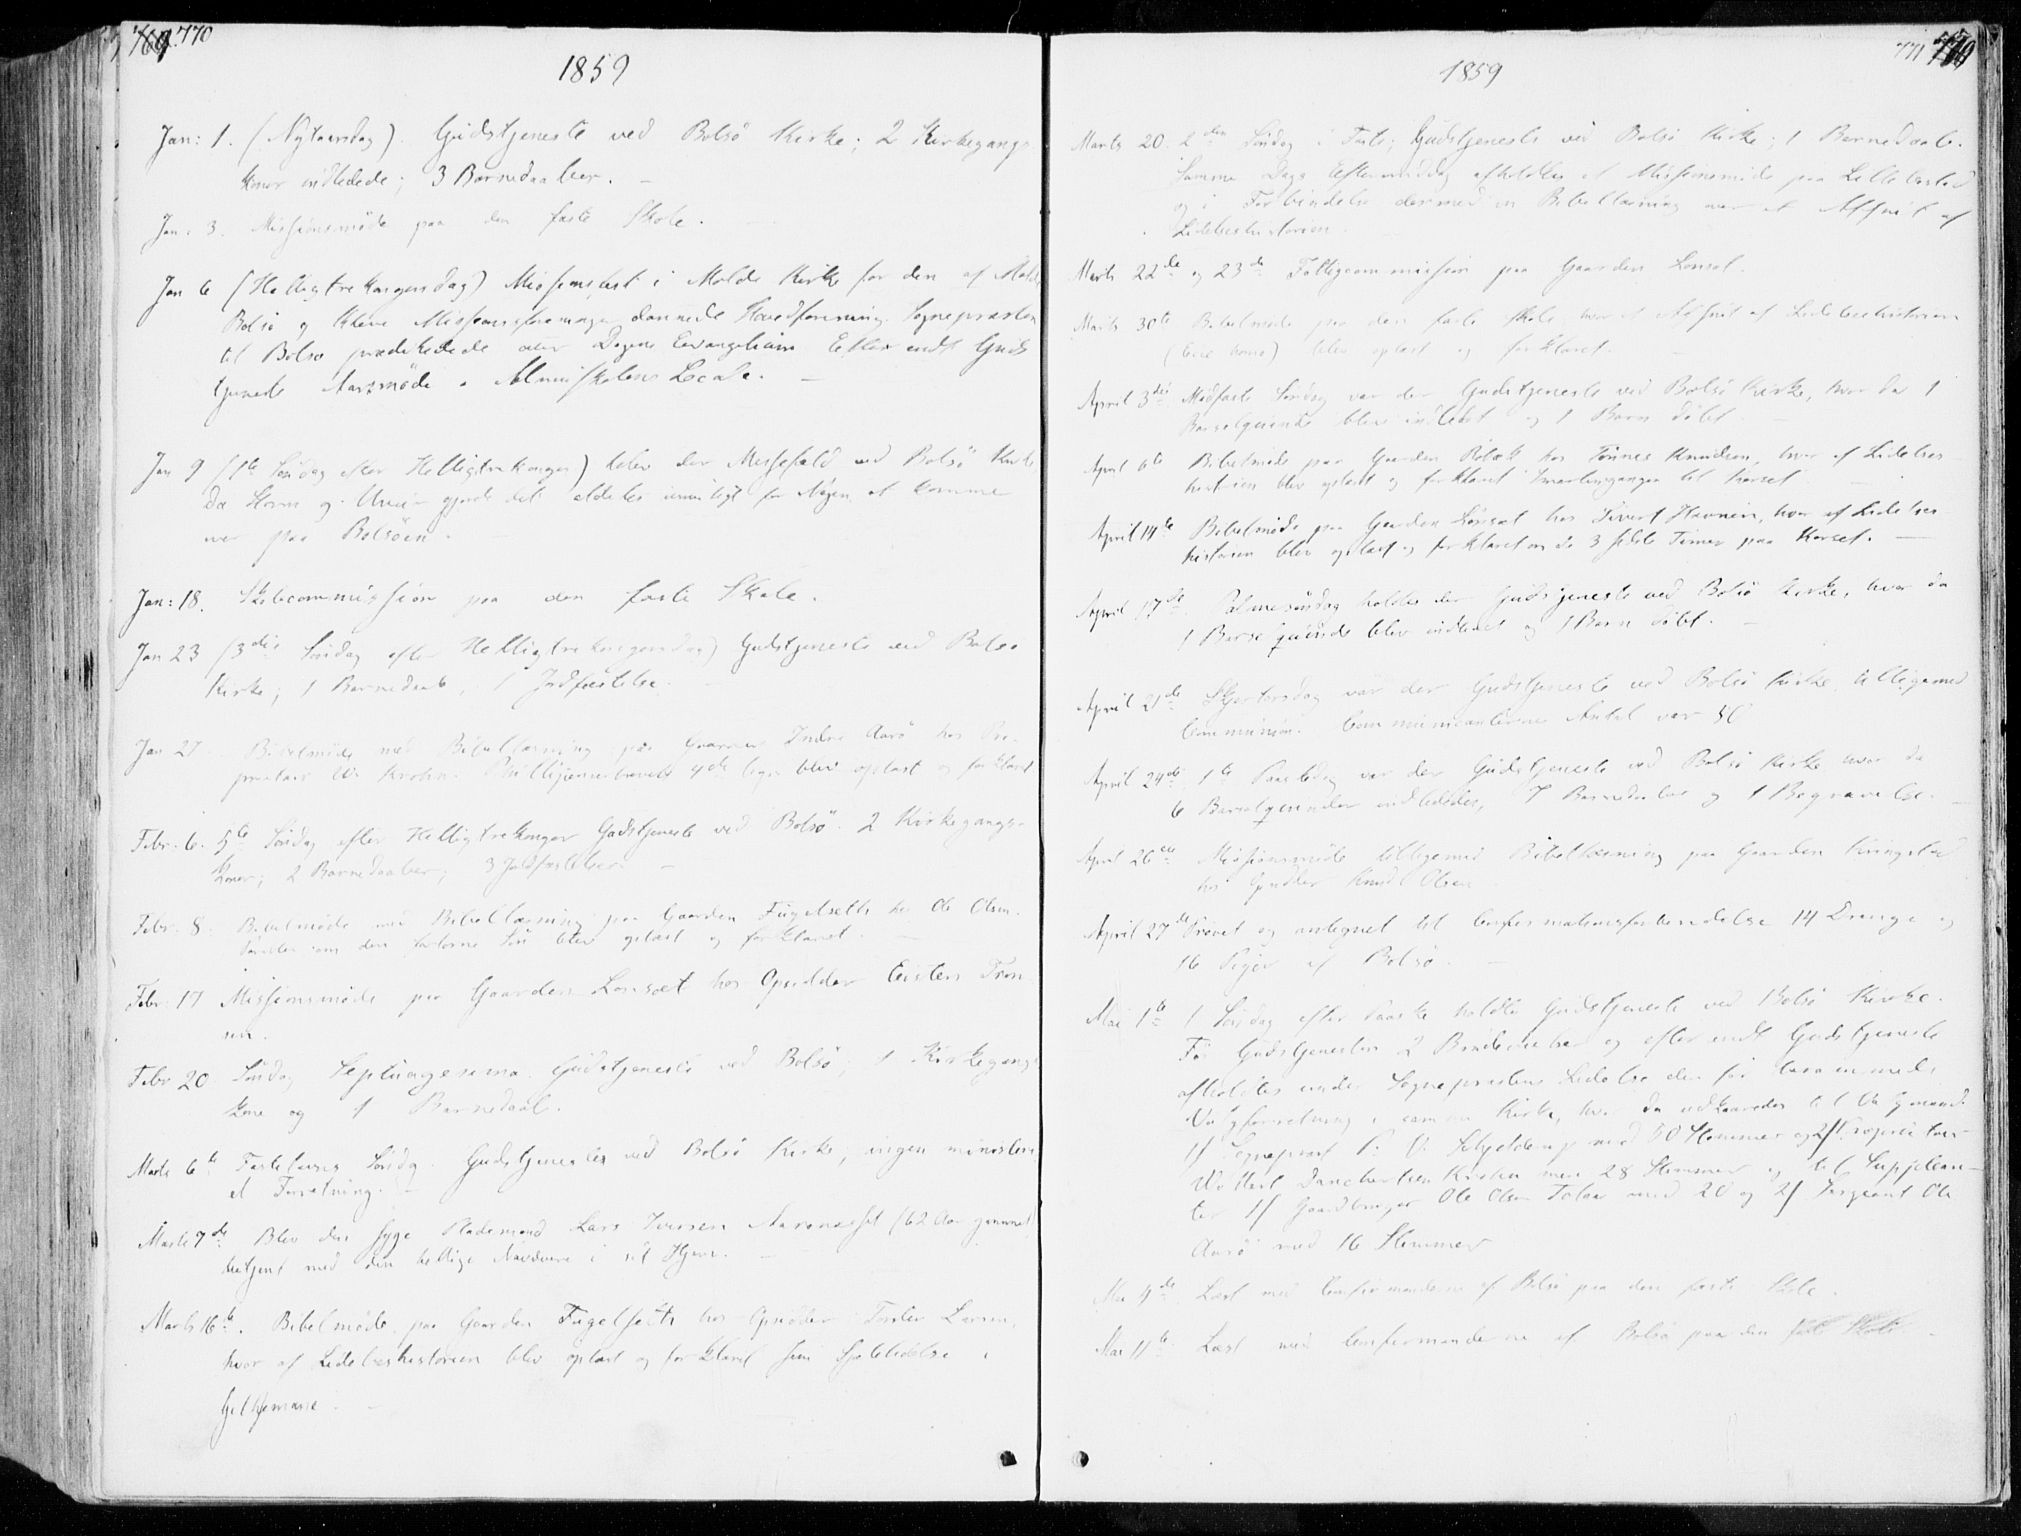 769 770
1859
Jan: 1. (Nytaarsdag). Gudstjeneste ved Bolsö Kirke; 2 Kirkegangs
koner indledede; 3 Barnedaaber. –
Jan: 3. Missionsmöde paa den faste Skole. –
Jan 6 (Helligtrekongersdag) Missionsfest i Molde Kirke for den af Molde
Bolsö og Missionsforeninger dannede Hovedforening. Sognepræsten
til Bolsö prædikede over Dagens Evangelium Efter endt Guds
tjeneste Aarsmöde i Almueskolens Locale. –
Jan 9 (1ste Söndag efter Helligtrekonger) blev der Messefald ved Bolsö Kirke
da Storm og Uveir gjorde det aldeles umuligt for Nogen at komme
over paa Bolsöen. –
Jan: 18. Skolecommission paa den faste Skole.
Jan 23 (3die Söndag efter Helligtrekongersdag) Gudstjeneste ved Bolsö
Kirke; 1 Barnedaab, 1 Jordfæstelse. –
Jan 27. Bibelmöde med Bibellæsning paa Gaarden Indre Aarö hos Pro-
prietair W. Krohn. Phillipenserbrevets 4de blev oplæst og forklaret
Febr. 6. 5te Söndag efter Helligtrekonger Gudstjeneste ved Bolsö. 2 Kirkegangs-
koner; 2 Barnedaaber; 3 Jordfæstelser –
Febr. 8. Bibelmöde med Bibellæsning paa Gaarden Fugelseth hos Ole Olsen.
om den fortorne Sön blev oplæst og forklaret. –
Febr. 17 Missionsmöde paa Gaarden Lonsæt hos Opsidder Eisten Tron
sen.
Febr 20 Söndag Septuagesima Gudstjeneste ved Bolsö. 1 Kirkegangs
kone og 1 Barnedaab.
Marts 6te Fastelavns Söndag. Gudstjeneste ved Bolsö Kirke, ingen ministeri
el Forretning. –
Marts 7de Blev den syge Pladsmand Lars Iversen (62 Aar gammel)
betjent med den hellige Nadvere i sit Hjem. –
Marts 16de. Bibelmöde paa Gaarden Fugelseth hos Opsidder Larsen,
hvor af Lidelseshistorien blev oplæst og forklaret Sjelelidelse i
Gethsemane. –
771 770
1859
Marts 20. 2den Söndag i Faste; Gudstjeneste ved Bolsö Kirke; 1 Barnedaab.
Samme Dags Eftermiddag afholdtes et Missionsmöde paa
og i Forbindelse dermed en Bibellæsning over et Afsnit af
Lidelseshistorien. –
Marts 22de og 23de Fattigcommission paa Gaarden Lonsæt.
Marts 30te Bibelmöde paa den faste Skole, hvor et Afsnit af Lidelseshistorien
(Ecce homo) blev oplæst og forklaret. –
April 3die Midfaste Söndag var der Gudstjeneste ved Bolsö Kirke, hvor da 1
Barselqvinde blev indledet og 1 Barn döbt. –
April 6te Bibelmöde paa Gaarden Röbæk hos Tönnes Knudsen, hvor af Lidelses-
historien blev oplæst og forklaret til Korset. –
April 14de Bibelmöde paa Gaarden Lonsæt hos Sivert, hvor af Lidelses-
historien blev oplæst og forklaret om de 3 sidste Timer paa Korset. –
April 17de. Palmesöndag holdtes der Gudstjeneste ved Bolsö Kirke, hvor da
1 Barselqvinde blev indledet og 1 Barn döbt. –
April 21de Skjertorsdag var der Gudstjeneste ved Bolsö Kirke tilligemed
Communion. Communicanternes Antal var 50
April 24de 1ste Paaskedag var der Gudstjeneste ved Bolsö Kirke hvor da
6 Barselqvinder indlededes, 7 Barnedaaber og 1 Begravelse. –
April 26de Missionsmöde tilligemed Bibellæsning paa Gaarden Kringstad
hos Opsidder Knud Olsen
April 27de Prövet og antegnet til Confirmationsforberedelse 14 Drenge og
16 Piger af Bolsö. –
Mai 1ste 1 Söndag efter Paaske holdtes Gudstjeneste ved Bolsö Kirke.
För Gudstjenesten 2 Brudevielser og efter endt Gudstjeneste
afholdtes under Sognepræstens Ledelse den for
Valgforretning i samme Kirke, hvor da udkaaredes til Valgmænd
1/ Sognepræst P. V. med 30 Stemmer og 2/ Proprietair
Wollert Danchertsen Krohn med 28 Stemmer og til Supplean-
ter 1/ Gaardbruger Ole Olsen med 20 og 2/ Sergeant Ole
Aarö med 16 Stemmer
Mai 4de. Læst med Confirmanderne af Bolsö paa den faste Skole.
Mai 11te Læst med Confirmanderne af Bolsö paa den faste Skole –